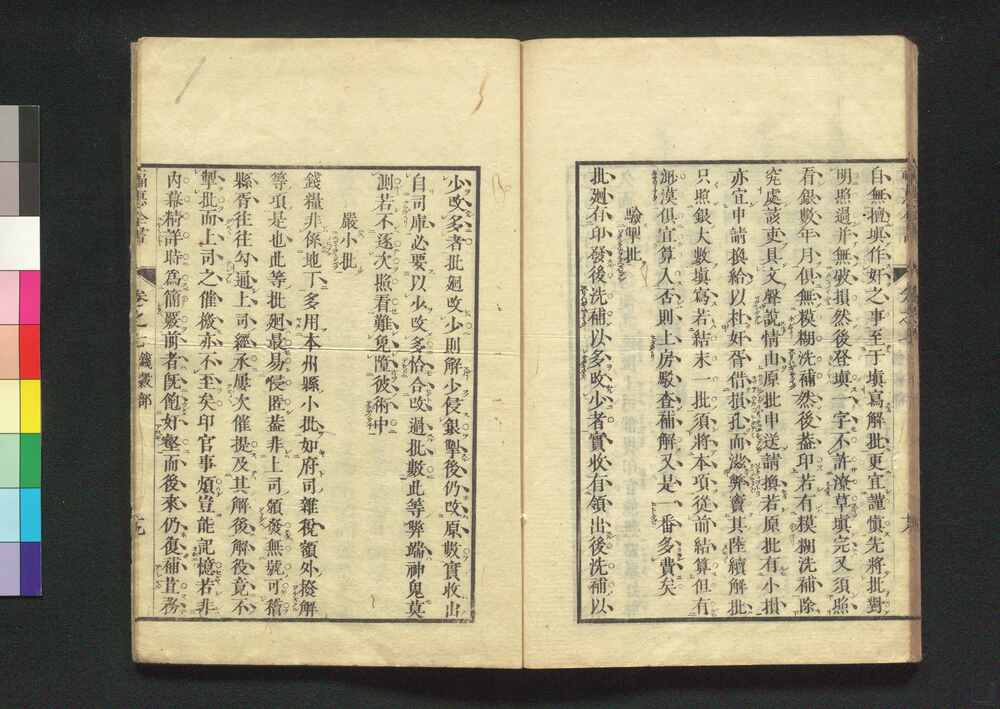 自無擅填作奸之事至于填寫解批更宜謹慎先將批對
明照過并無破損然後登填一字不許潦草填完又須照
看銀數年月俱無模糊洗補然後葢印若有模糊洗補除
究處該吏具文聲說情由原批申送請換若原批有小損
亦宜申請換給以杜奸胥借損孔而滋弊竇其陸續解批
只照銀大數填寫若結末一批須將本項從前結算但有
絲漠俱宜算入否則上房駁查補解又是一番多費矣
驗掣批
批廻有印發後洗補以多改少者實收有領出後洗補以
少改多者批廻改少則解少侵銀掣後仍改原數實收出
自司庫必要以少改多恰合改過批數此等弊端神鬼莫
測若不逐次照看難免墮彼術中
嚴小批
錢糧非係地丁多用本州縣小批如府司雜稅額外撥解
等項是也此等批廻最易侵匿葢非上司頒發無號可稽
縣胥往往勾通上司經承屢次催提及其解後解役竟不
掣批而上司之催檄亦不至矣印官事煩豈能記憶若非
內幕精詳時為簡嚴前者旣飽奸壑而後來仍復補苴務
福惠全書 卷之七 錢穀部 九